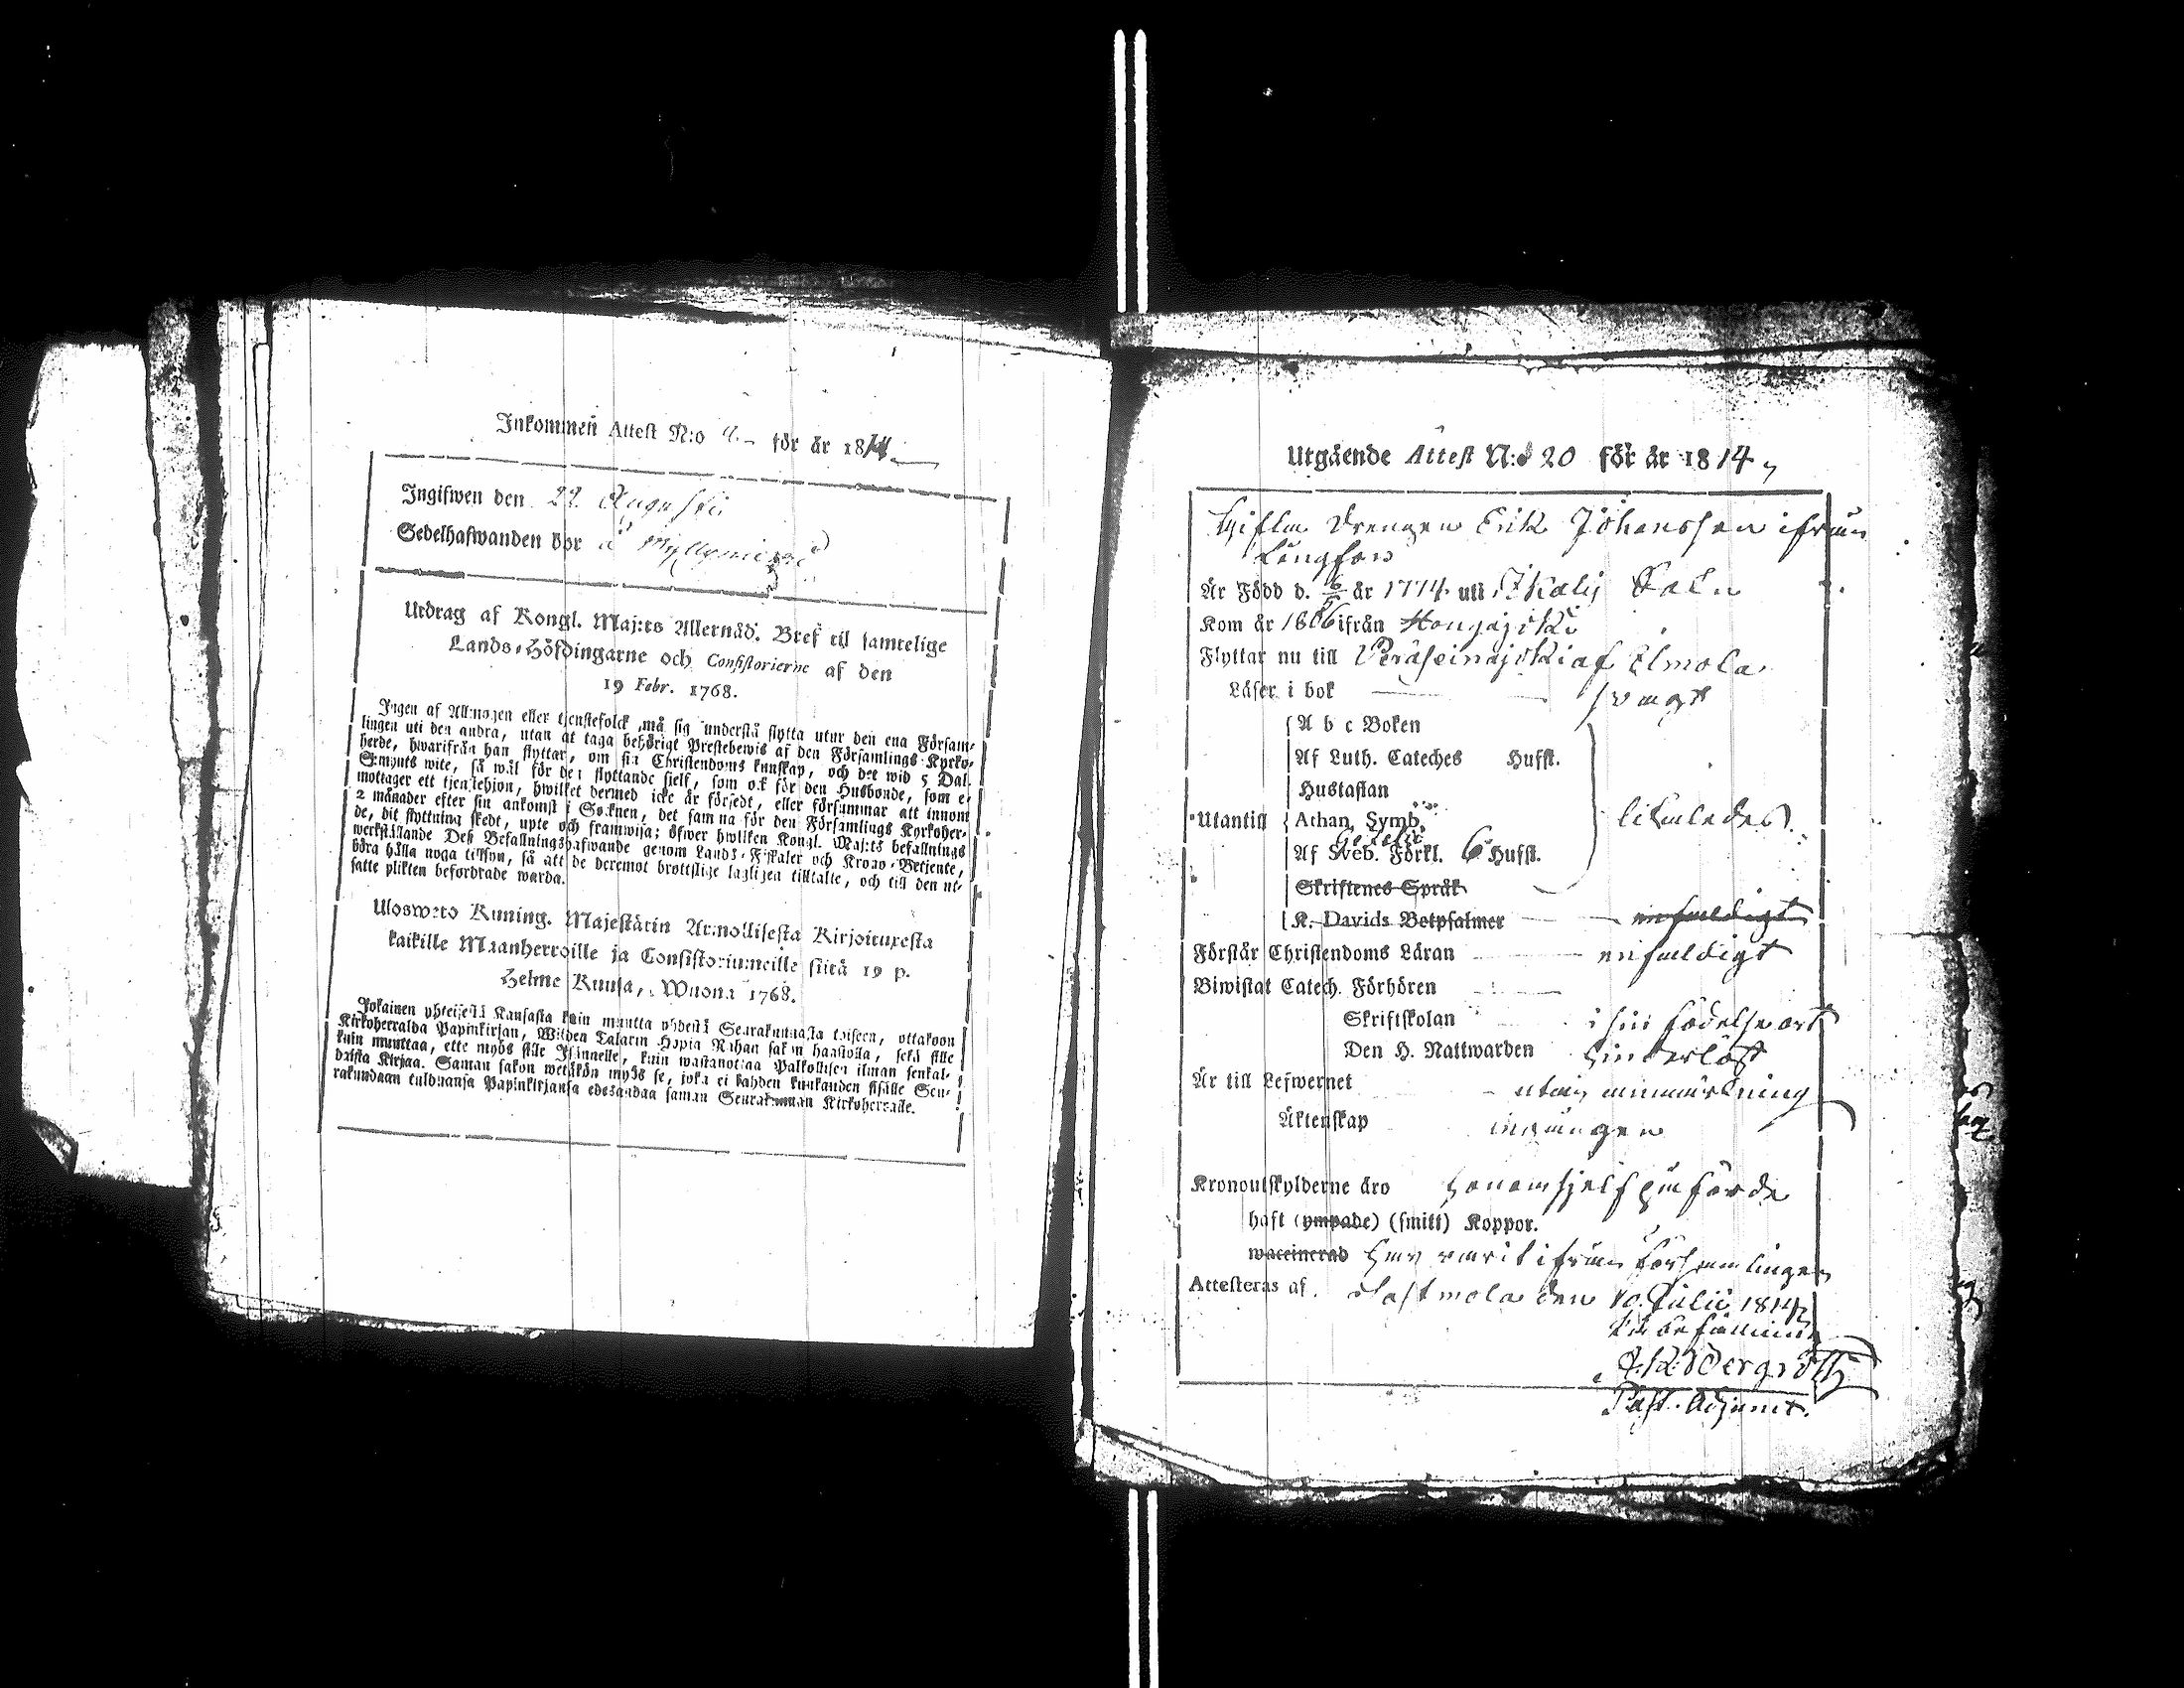 Inkommen Attest N:o 9. för år 1814
Ingifwen den 22 Augusti
Sedelhafwanden bor å Myllymäki
Utdrag af Kongl. Maj:ts Allernåd. Bref til samtelige
Lands-Höfdingarne och Consistorierne af den
19 Febr. 1768.
Ingen af Allmogen eller tjenstefolck må sig understå flytta utur den ena Församl-
lingen uti den andra, utan at taga behörigt Prestebewis af den Församlings Kyrko-
herde, hwarifrån han flyttar, om sin Christendoms kunskap, och det wid 5 Dal.
S:mynts wite, så wäl för den flyttande sjelf, som ock för den Husbonde, som e-
mottager ett tjenstehjon, hwilket dermed icke är försedt, eller försummar att innom
2 månader efter sin ankomst i Socknen, det samma för den Församlings Kyrkoher-
de, dit flyttning skedt, upte och framwisa; öfwer hwilken Kongl. Maj:ts befallnings
werkställande Deß Befallningshafwande genom Lands-Fiskaler och Krono-Betjente,
böra hålla noga tillsyn, så att de deremot brottslige lagligen tilltalte, och till den ut-
satte plikten befordrade warda.
Ulosweto Kuning. Majestätin Armollisesta Kirjoituxesta
kaikille Maanherroille ja Consistoriumeille siitä 19 p.
Helme Kuusa, Wuonna 1768.
Jokainen yhteisestä Kansasta kuin muutta yhdestä Seurakunnasta toiseen, ottakoon
Kirkoherralda Papinkirjan, Wijden Talarin Hopia Rahan sakon haastolla, sekä sille
kuin muuttaa, ette myös sille Isännelle, kuin wastanottaa Palkollisen ilman senkal-
daista Kirjaa. Saman sakon wetäkön myös se, joka ei kahden kuukauden sisälle Seu-
rakundaan tulduansa Papinkirjansa edesandaa saman Seurakunnan Kirkoherralle.
Utgående Attest N:o 20 för år 1814
Gifta Drengen Erik Johansson ifrån
Lungfors
Är Född d. 6/5 år 1774 uti Ikalis Sokn
Kom år 1806 ifrån Hongojoki
Flyttar nu till Peräseinäjoki af Ilmola
Läser i bok svagt
A b c Boken
Af Luth. Cateches Hufst.
Hustaflan
Utantill Athan. Symb.
Gezelii
Af Sveb. Förkl. 6 Hufst. likaledes
Skriftenes Språk
K. Davids Botpsalmer enfaldigt
Förstår Christendoms Läran enfaldigt
Biwistat Catech. Förhören
Skriftskolan i sin födelseort
Den H. Nattwarden hinderlöst
Är till Lefwernet utan anmärkning
Äktenskap ingången
Kronoutskylderne äro honom sjelf påförde
haft (ympade) (smitt) Koppor.
waccinerad har varit ifrån församlingen
Attesteras af. Lastmola den 10 Julii 1814
Past. Adjunct.